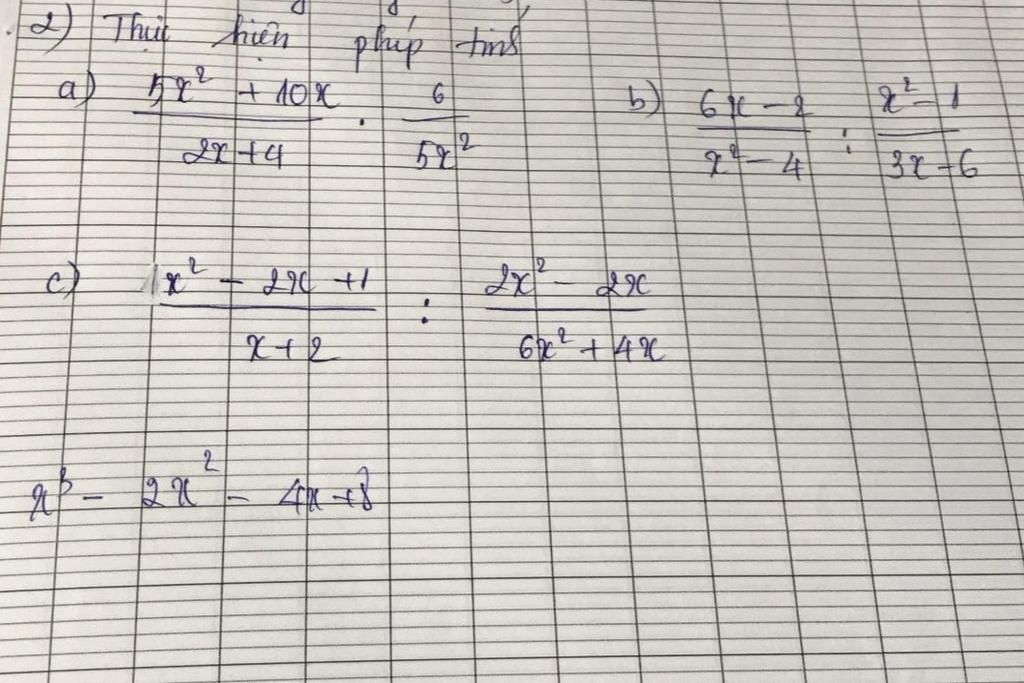 2) Thực hiện phép tính
a) \frac{5x^2 + 10x}{2x + 4} . \frac{6}{5x^2} b) \frac{6x - 2}{x^2 - 4} : \frac{x^2 - 1}{3x - 6}
c) \frac{x^2 - 2x + 1}{x + 2} : \frac{2x^2 - 2x}{6x^2 + 4x}
x^3 - 2x^2 - 4x + 8